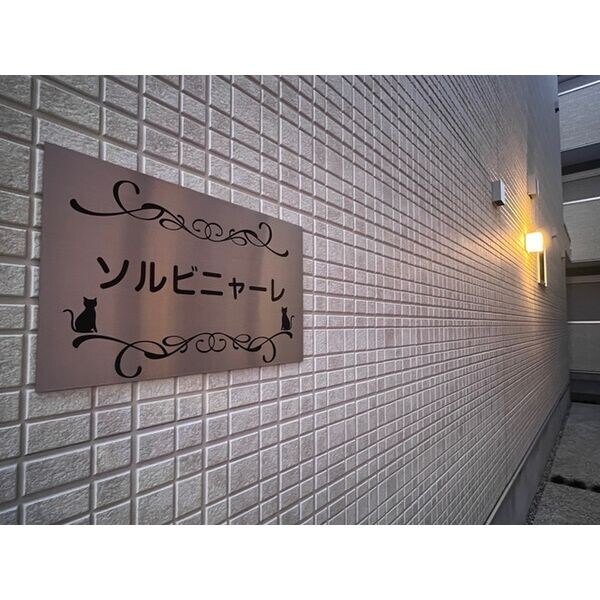 ソルビニャーレ